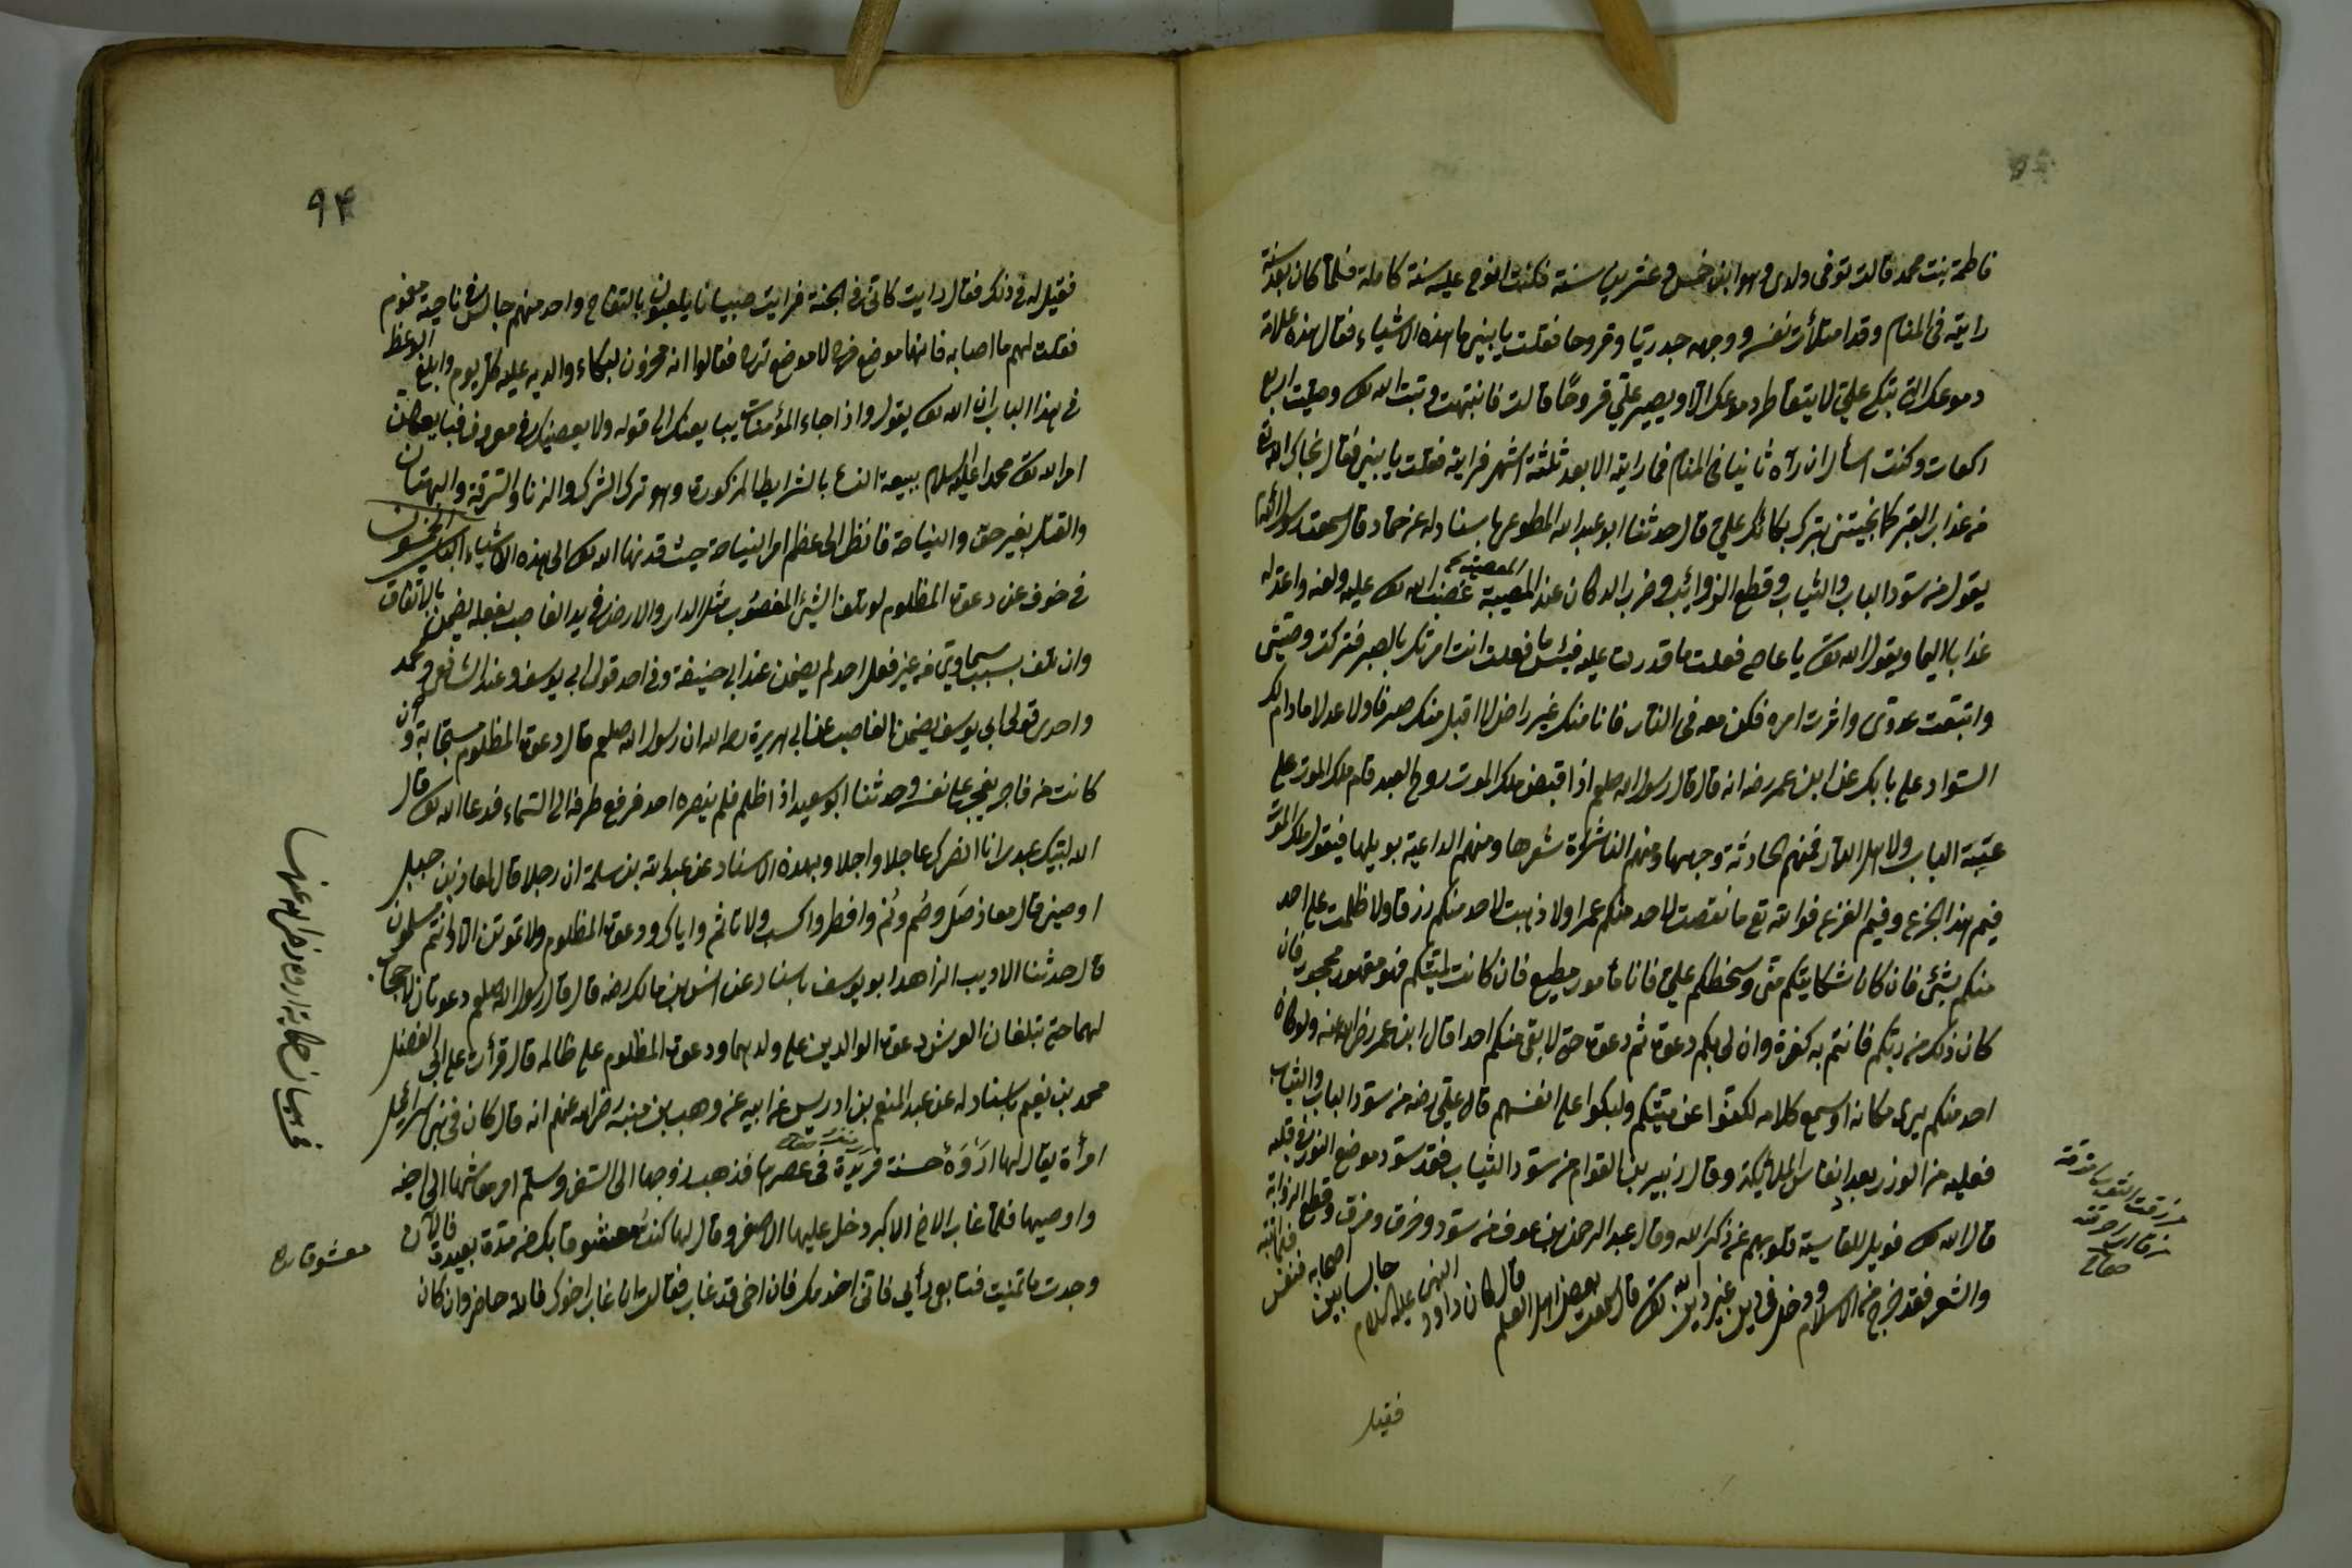 فاطمة بنت محمد قالت توفى ولدى وهو ابن خمس وعشرين سنة فكنت انوح عليه سنة كاملة فلما كان بعد سنة
رايته فى المنام وقد امتلأت نفسه ووجهه جدريا وقروحا فقلت يا بنى ما هذه الاشياء فقال هذه علامة
دموعك التى تبكى على لا يتقاطر دموعك الا ويصير على قروحًا قالت فانتبهت وتبت الى الله تع وصليت اربع
ركعات وكنت اسأل ان راه ثانيا فى المنام فما رايته الا بعد ثلثة اشهر فرايته فقلت يا بنى فقال نجاك الله
من عذاب القبر كما نجيتنى بترك بكائك على قال حدثنا ابو عبد الله المطوعى باسناد له عن حماد قال سمعت
يقول من سود الباب والثياب وقطع الذوائب وضرب الدكان عند المصيبة غضب الله تع عليه ولعنه واعد له
عذابا اليما ويقول الله تع يا عاصى فعلت ما قدرت عليه فبئس ما فعلت انت امرتك بالصبر فتركت وصيتى
واتبعت عدوى واثرت امره فكن معه فى النار فانا منك غير راض لا اقبل منك صرفا ولا عدلا مادام لك
السواد على بابك عن ابن عمر رضه انه قال قال رسول الله صلعم اذا قبض ملك الموت روح العبد قام ملك الموت على
عتبة الباب ولاهل الدار فمنهم الخادشة وجهها ومنهم الناشرة شعرها ومنهم الداعية بويلها فيقول ملك الموت
فيم هذا الجزع وفيم الفزع فوالله تع ما نقصت لاحد منكم عمرا ولا ذهبت لاحد منكم رزقا ولا ظلمت على احد
منكم بشئ فان كان شكايتكم منى وسخطكم على فانا مأمور مطيع فان كانت لميتكم فهو مقهور مجبور فان
كان ذلك من ربكم فانتم به كفرة وان لى بكم دعوة ثم دعوة حتى لا يبقى منكم احد قال ابن عمر رضى الله عنه ولو كان
احد منكم يرى مكانه او سمع كلامه لكفوا عن ميتكم ولبكوا على انفسهم قال على رضه من سود الباب والثياب
فعليه من الوزر بعدد انفاس الملائكة وقال زبير بن القوام من سود الثياب فقد سود موضع النور فى قلبه
قال الله تع فويل للقاسية قلوبهم عن ذكر الله وقال عبد الرحمن بن عوف من سود وخرق ومزق وقطع الذوابة
والشعر فقد خرج من الاسلام ودخل فى دين غير دين الله تع قال سمعت بعض اهل العلم قال كان داود النبى عليه السلام جالسا بين اصحابه
فقيل
٩٤
فقيل له فى ذلك فقال رايت كانى فى الجنة فرايت صبيانا يلعبون بالتفاح واحد منهم جالس فى ناحية مغموم
فقلت لهم ما اصابه فانها موضع فرح لا موضع ترح فقالوا انه محزون لبكاء والديه عليه كل يوم وابلغ الوعظ
فى هذا الباب ان الله تع يقول واذا جاءك المؤمنات يبايعنك الى قوله ولا يعصينك فى معروف فبايعهن
امر الله تع محمدا عليه السلام ببيعة النساء بالشرايط المذكورة وهو ترك الشرك والزنا والسرقة والبهتان
والقتل بغير حق والنياحة فانظر الى عظم امر النياحة حيث قد نها الله تع الى هذه الاشياء الباب الخمسون
فى خوف عن دعوة المظلوم لو تلف الشئ المغصوب مثل الدار والارض فى يد الغاصب بفعله يضمن بالاتفاق
وان تلف بسبب سماوى من غير فعل احد لم يضمن عند ابى حنيفة وفى احد قولى ابى يوسف وعند الشافعى ومحمد
واحدى قولى ابى يوسف يضمن الغاصب عن ابى هريرة رحمه الله ان رسول الله صلعم قال دعوة المظلوم مستجابة وان
كانت من فاجر يفجر على نفسه وحدثنا ابو سعيد اذا ظلم فلم ينصره احد فرفع طرفه الى السماء فدعا الله تع قال
الله لبيك عبدى انا انصرك عاجلا واجلا وبهذه الاسناد عن عبد الله بن سلمة ان رجلا قال لمعاذ بن جبل
اوصينى قال معاذ صل وصم ونم وافطر واكسب ولا تأثم واياك ودعوة المظلوم ولا تموتن الا وانتم مسلمون
قال حدثنا الاديب الزاهد ابو يوسف باسناد عن انس بن مالك رضه قال قال رسول الله صلعم دعوتان لا حجاب
لهما حتى تبلغان العرش دعوة الوالدين على ولدهما ودعوة المظلوم على ظالمه قال قرأت على ابى الفضل
محمد بن نعيم باسناد له عن عبد المنعم بن ادريس عن ابيه عن وهب بن منبه رضى الله عنهم انه قال كان فى بنى اسرائيل
امرأة يقال لها اروه حسنة فريدة فى عصرها فذهب زوجها الى السفر وسلم امر معاشها الى اخيه
واوصيها فلما غاب الاخ الاكبر دخل عليها الاصغر وقال لها كنت معشوقا بك من مدة بعيدة فالان
وجدت ما تمنيت فتابعى رأيى فانى اخدمك فان اخى قد غاب فقالت ان غاب اخوك فالله حاضر وان كان
فى بيان حكاية اروه رضى الله عنها
معشوقا